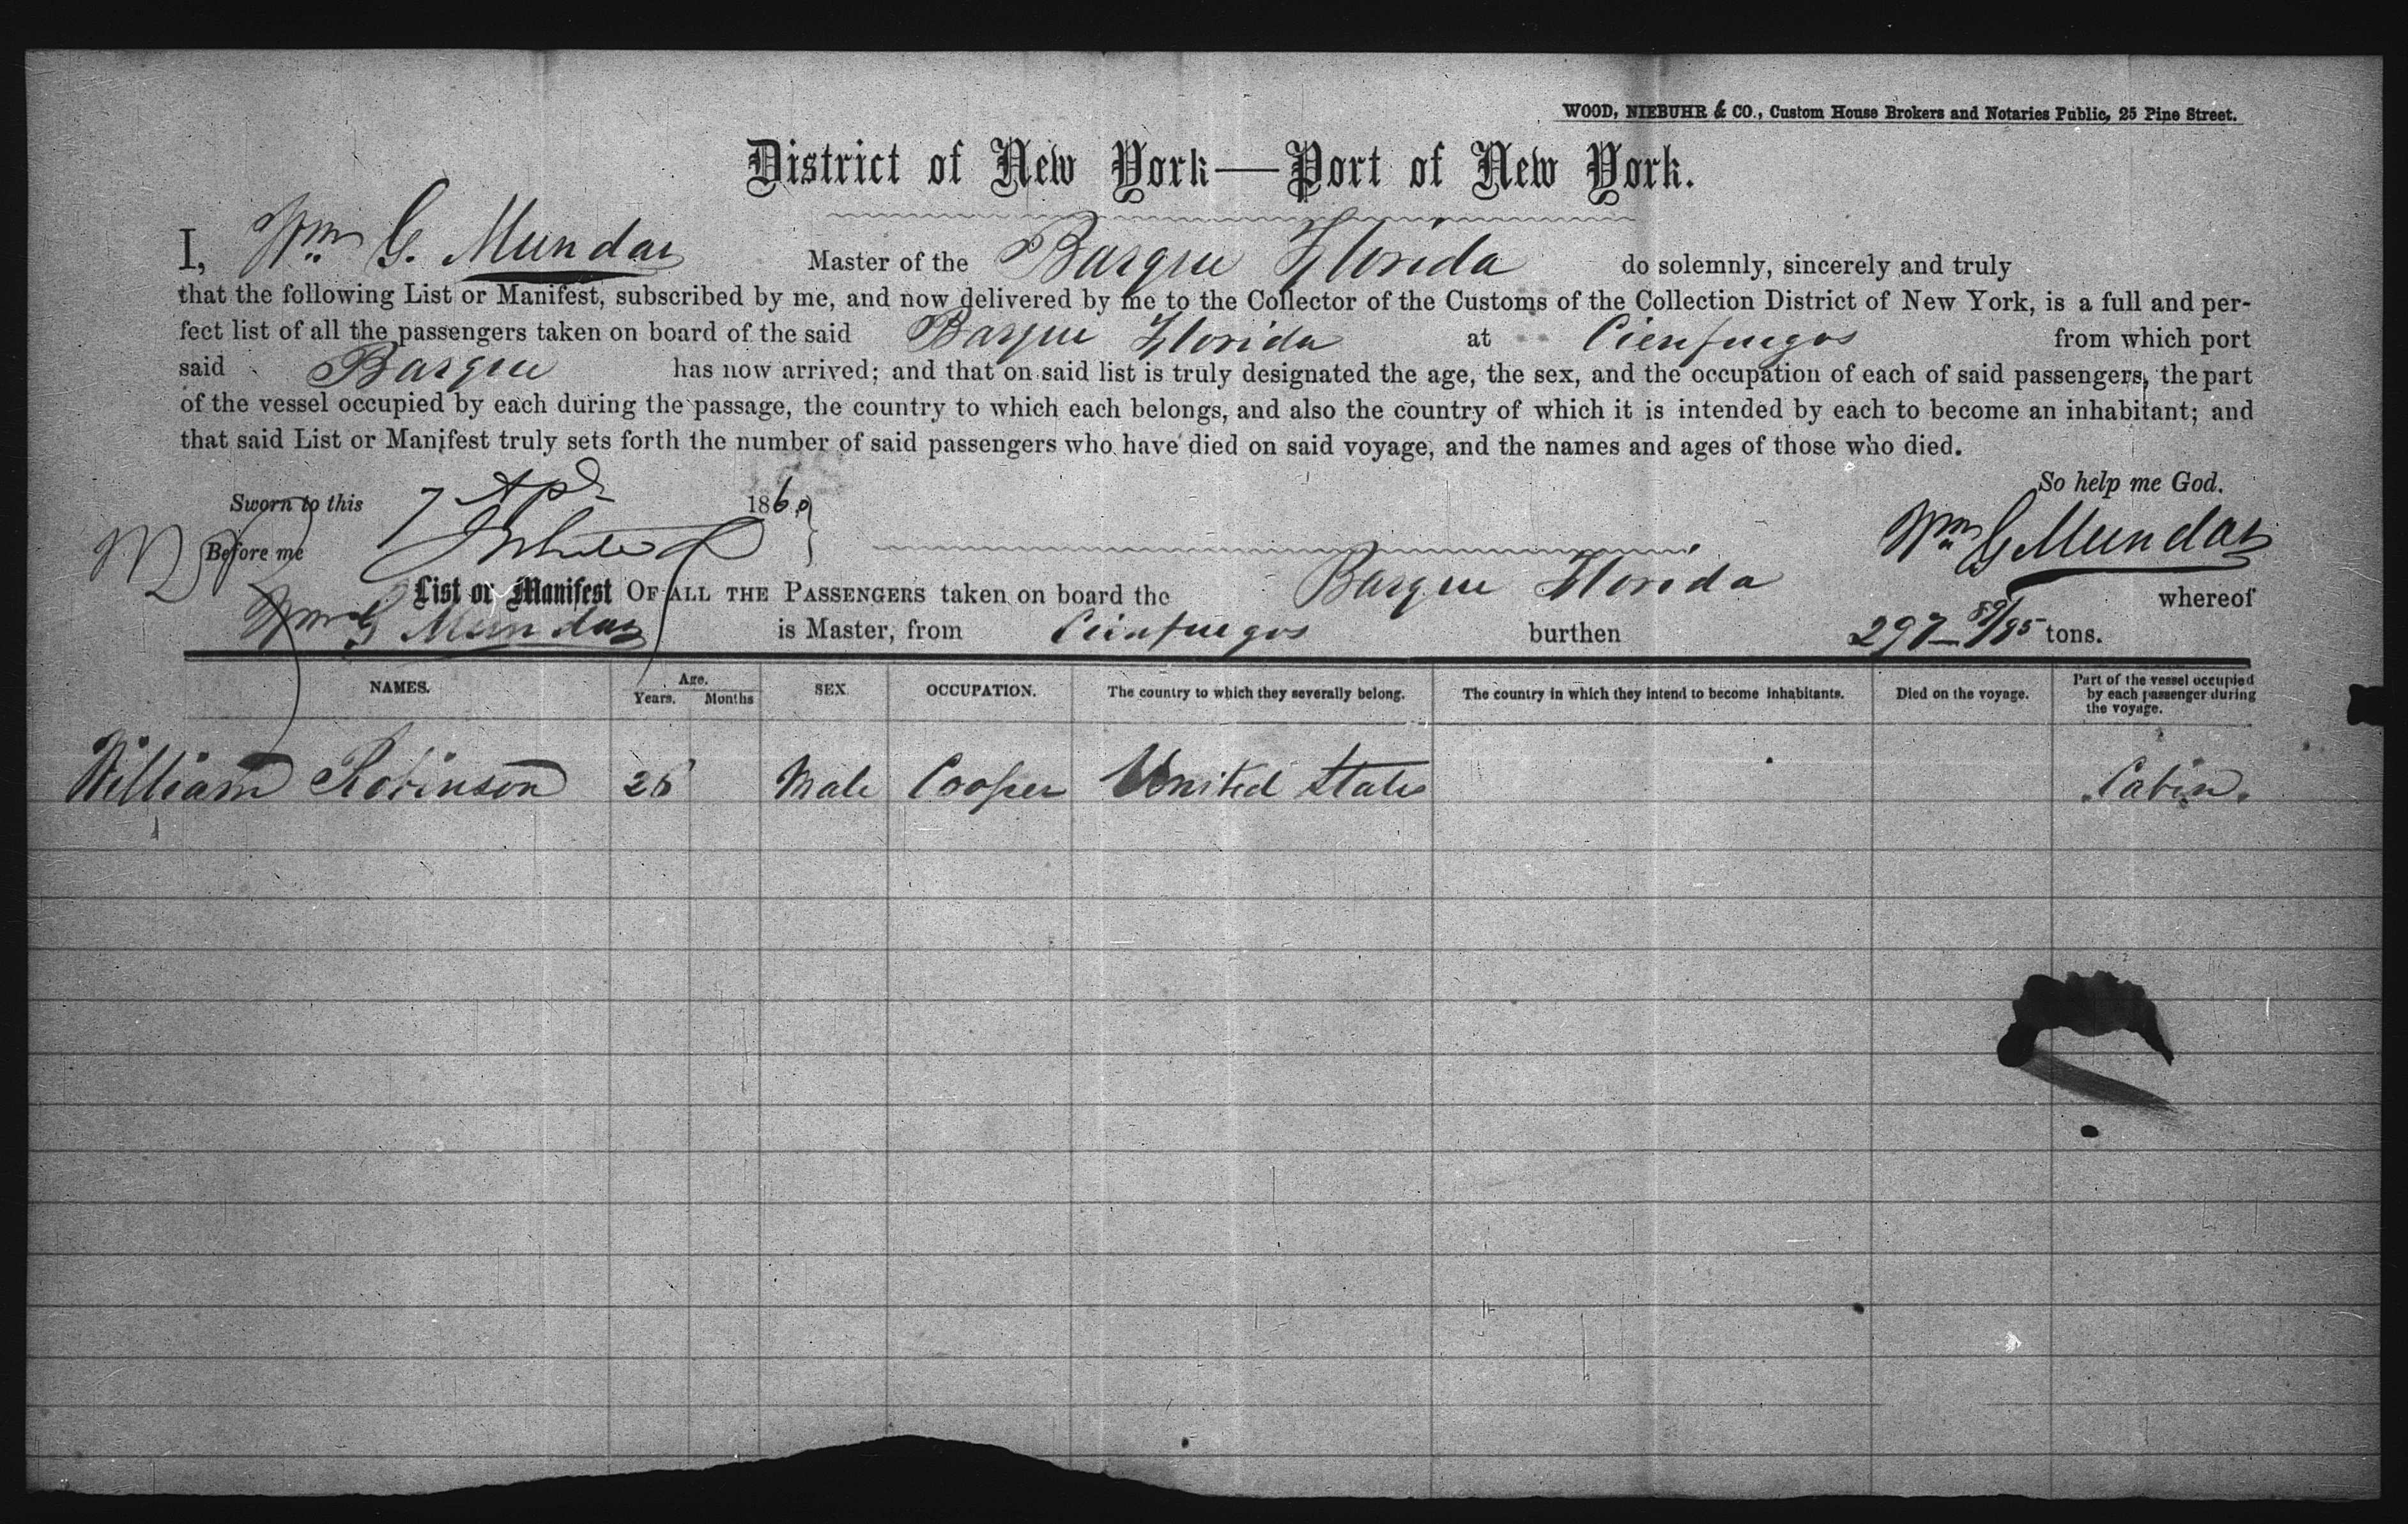 WOOD, NIEBUHR & CO., Custom House Brokers and Notaries Public, 25 Pine Street.
District of New York—Port of New York.
I, Wm G. Munday Master of the Barque Florida do solemnly, sincerely and truly
that the following List or Manifest, subscribed by me, and now delivered by me to the Collector of the Customs of the Collection District of New York, is a full and per-
fect list of all the passengers taken on board of the said Barque Florida at Cienfuegos from which port
said Barque has now arrived; and that on said list is truly designated the age, the sex, and the occupation of each of said passengers, the part
of the vessel occupied by each during the passage, the country to which each belongs, and also the country of which it is intended by each to become an inhabitant; and
that said List or Manifest truly sets forth the number of said passengers who have died on said voyage, and the names and ages of those who died.
So help me God.
Sworn to this 7 Apl 1860
Wm G Munday
Before me
List or Manifest OF ALL THE PASSENGERS taken on board the Barque Florida whereof
Wm G Munday is Master, from Cienfuegos burthen 297 89/95 tons.
NAMES. Age. Years. Months SEX OCCUPATION. The country to which they severally belong. The country in which they intend to become inhabitants. Died on the voyage. Part of the vessel occupied by each passenger during the voyage.
William Robinson 26 Male Cooper United States Cabin.